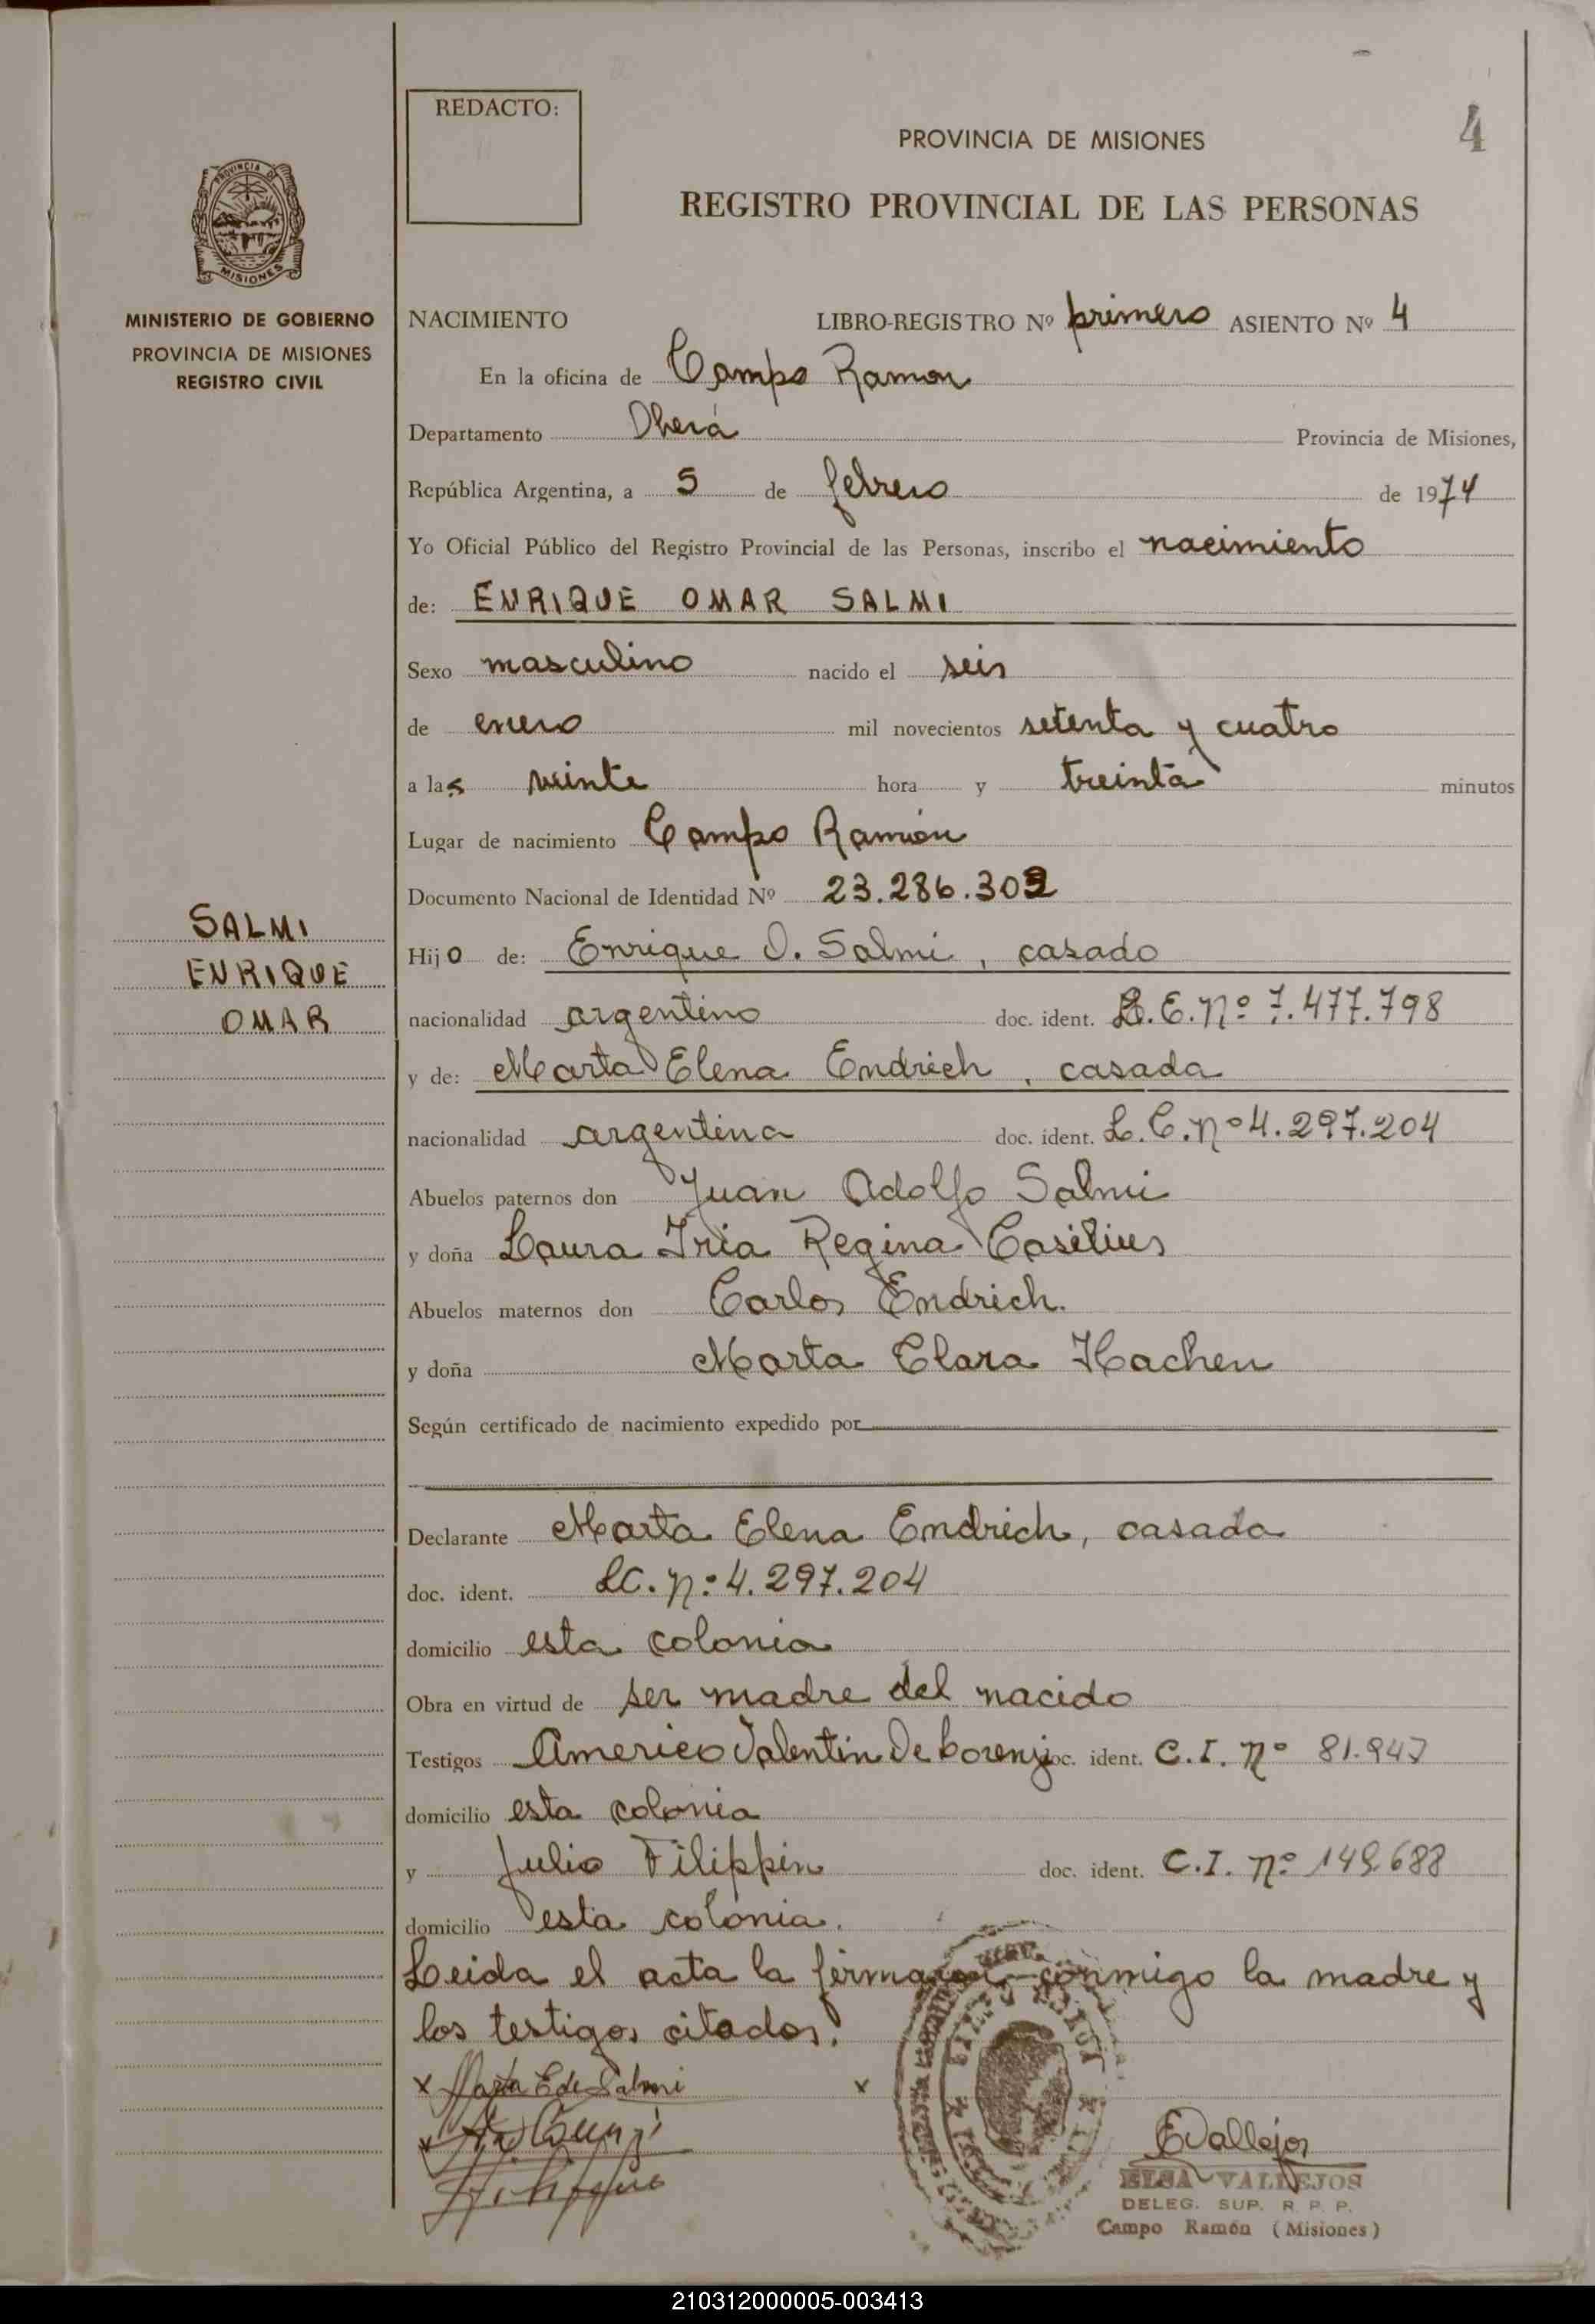 REDACTO:
4
PROVINCIA DE MISIONES
REGISTRO PROVINCIAL DE LAS PERSONAS
PROVINCIA DE
MISIONES
MINISTERIO DE GOBIERNO
PROVINCIA DE MISIONES
REGISTRO CIVIL
NACIMIENTO LIBRO-REGISTRO Nº primero ASIENTO Nº 4
En la oficina de Campo Ramon
Departamento Oberá Provincia de Misiones,
República Argentina, a 5 de febrero de 1974
Yo Oficial Público del Registro Provincial de las Personas, inscribo el nacimiento
de: ENRIQUE OMAR SALMI
Sexo masculino nacido el seis
de enero mil novecientos setenta y cuatro
a las veinte hora y treinta minutos
Lugar de nacimiento Campo Ramón
Documento Nacional de Identidad Nº 23.286.302
SALMI
ENRIQUE
OMAR
Hijo de: Enrique O. Salmi, casado
nacionalidad argentino doc. ident. L.E. nº 7.477.798
y de: Marta Elena Endrich, casada
nacionalidad argentina doc. ident. L.C. nº 4.297.204
Abuelos paternos don Juan Adolfo Salmi
y doña Laura Iria Regina Casilius
Abuelos maternos don Carlos Endrich.
y doña Marta Clara Hachen
Según certificado de nacimiento expedido por
Declarante Marta Elena Endrich, casada
doc. ident. LC. nº 4.297.204
domicilio esta colonia
Obra en virtud de ser madre del nacido
Testigos Americo Valentin De Lorenzi doc. ident. C.I. nº 81.947
domicilio esta colonia
y Julio Filippin doc. ident. C.I. nº 149.688
domicilio esta colonia.
Leida el acta la firman conmigo la madre y
los testigos citados.
x Marta E de Salmi x
x
EVallejos
ELSA VALLEJOS
DELEG. SUP. R. P. P.
Campo Ramón (Misiones)
210312000005-003413